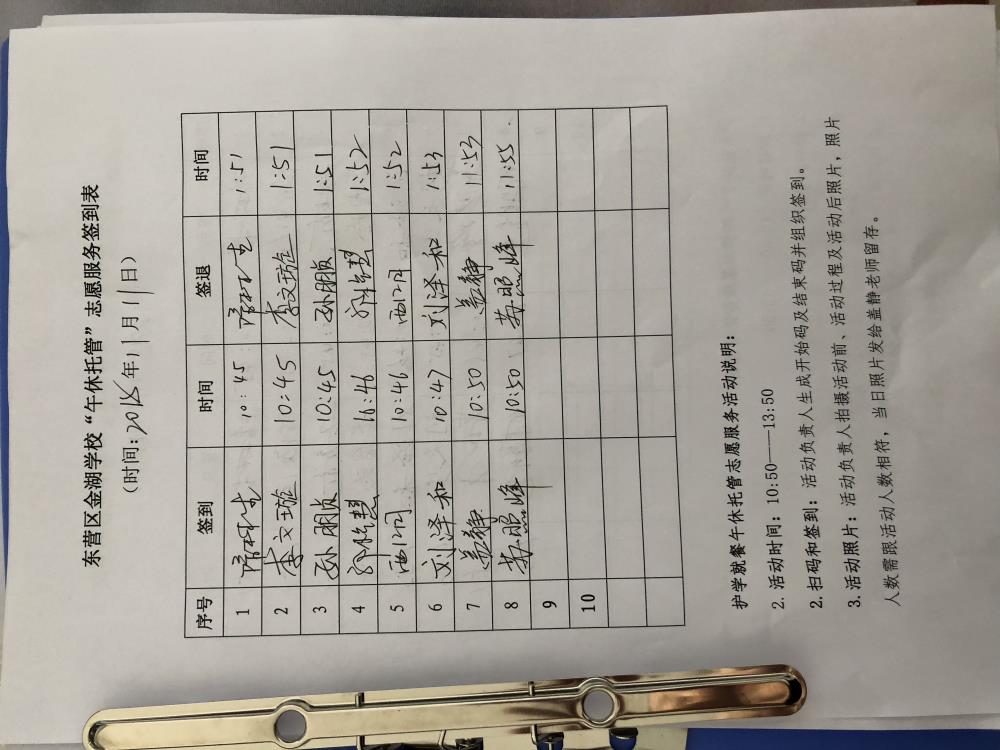 东营区金湖学校“午休托管”志愿服务签到表
（时间：2025年11月11日）
序号 签到 时间 签退 时间
1 10:45 1:51
2 李文璇 10:45 李文璇 1:51
3 孙朋贞 10:45 孙朋贞 1:51
4 16:46 1:52
5 10:46 1:52
6 刘泽和 10:47 刘泽和 1:53
7 盖静 10:50 盖静 11:53
8 苏照峰 10:50 苏照峰 11:55
9
10
护学就餐午休托管志愿服务活动说明：
2. 活动时间：10:50——13:50
2. 扫码和签到：活动负责人生成开始码及结束码并组织签到。
3. 活动照片：活动负责人拍摄活动前、活动过程及活动后照片，照片
人数需跟活动人数相符，当日照片发给盖静老师留存。